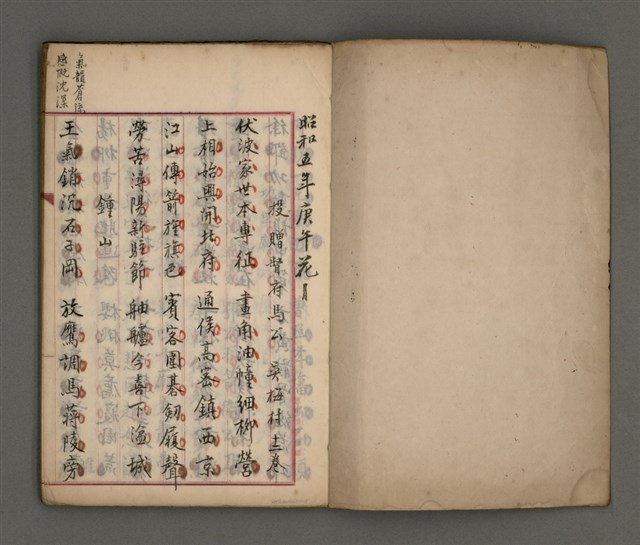 昭和五年庚午花月
投贈督府馬公 吳梅村十二卷
伏波家世本專征 畫角油幢細柳營
上相始興開北府 通侯高密鎮西京
江山傳箭旌旗色 賓客圍碁劒履聲
勞苦潯陽新駐節 舳艫今喜下湓城
鍾山
王氣銷沉石子岡 放鷹調馬蔣陵旁
氣韻蒼
感慨沈深